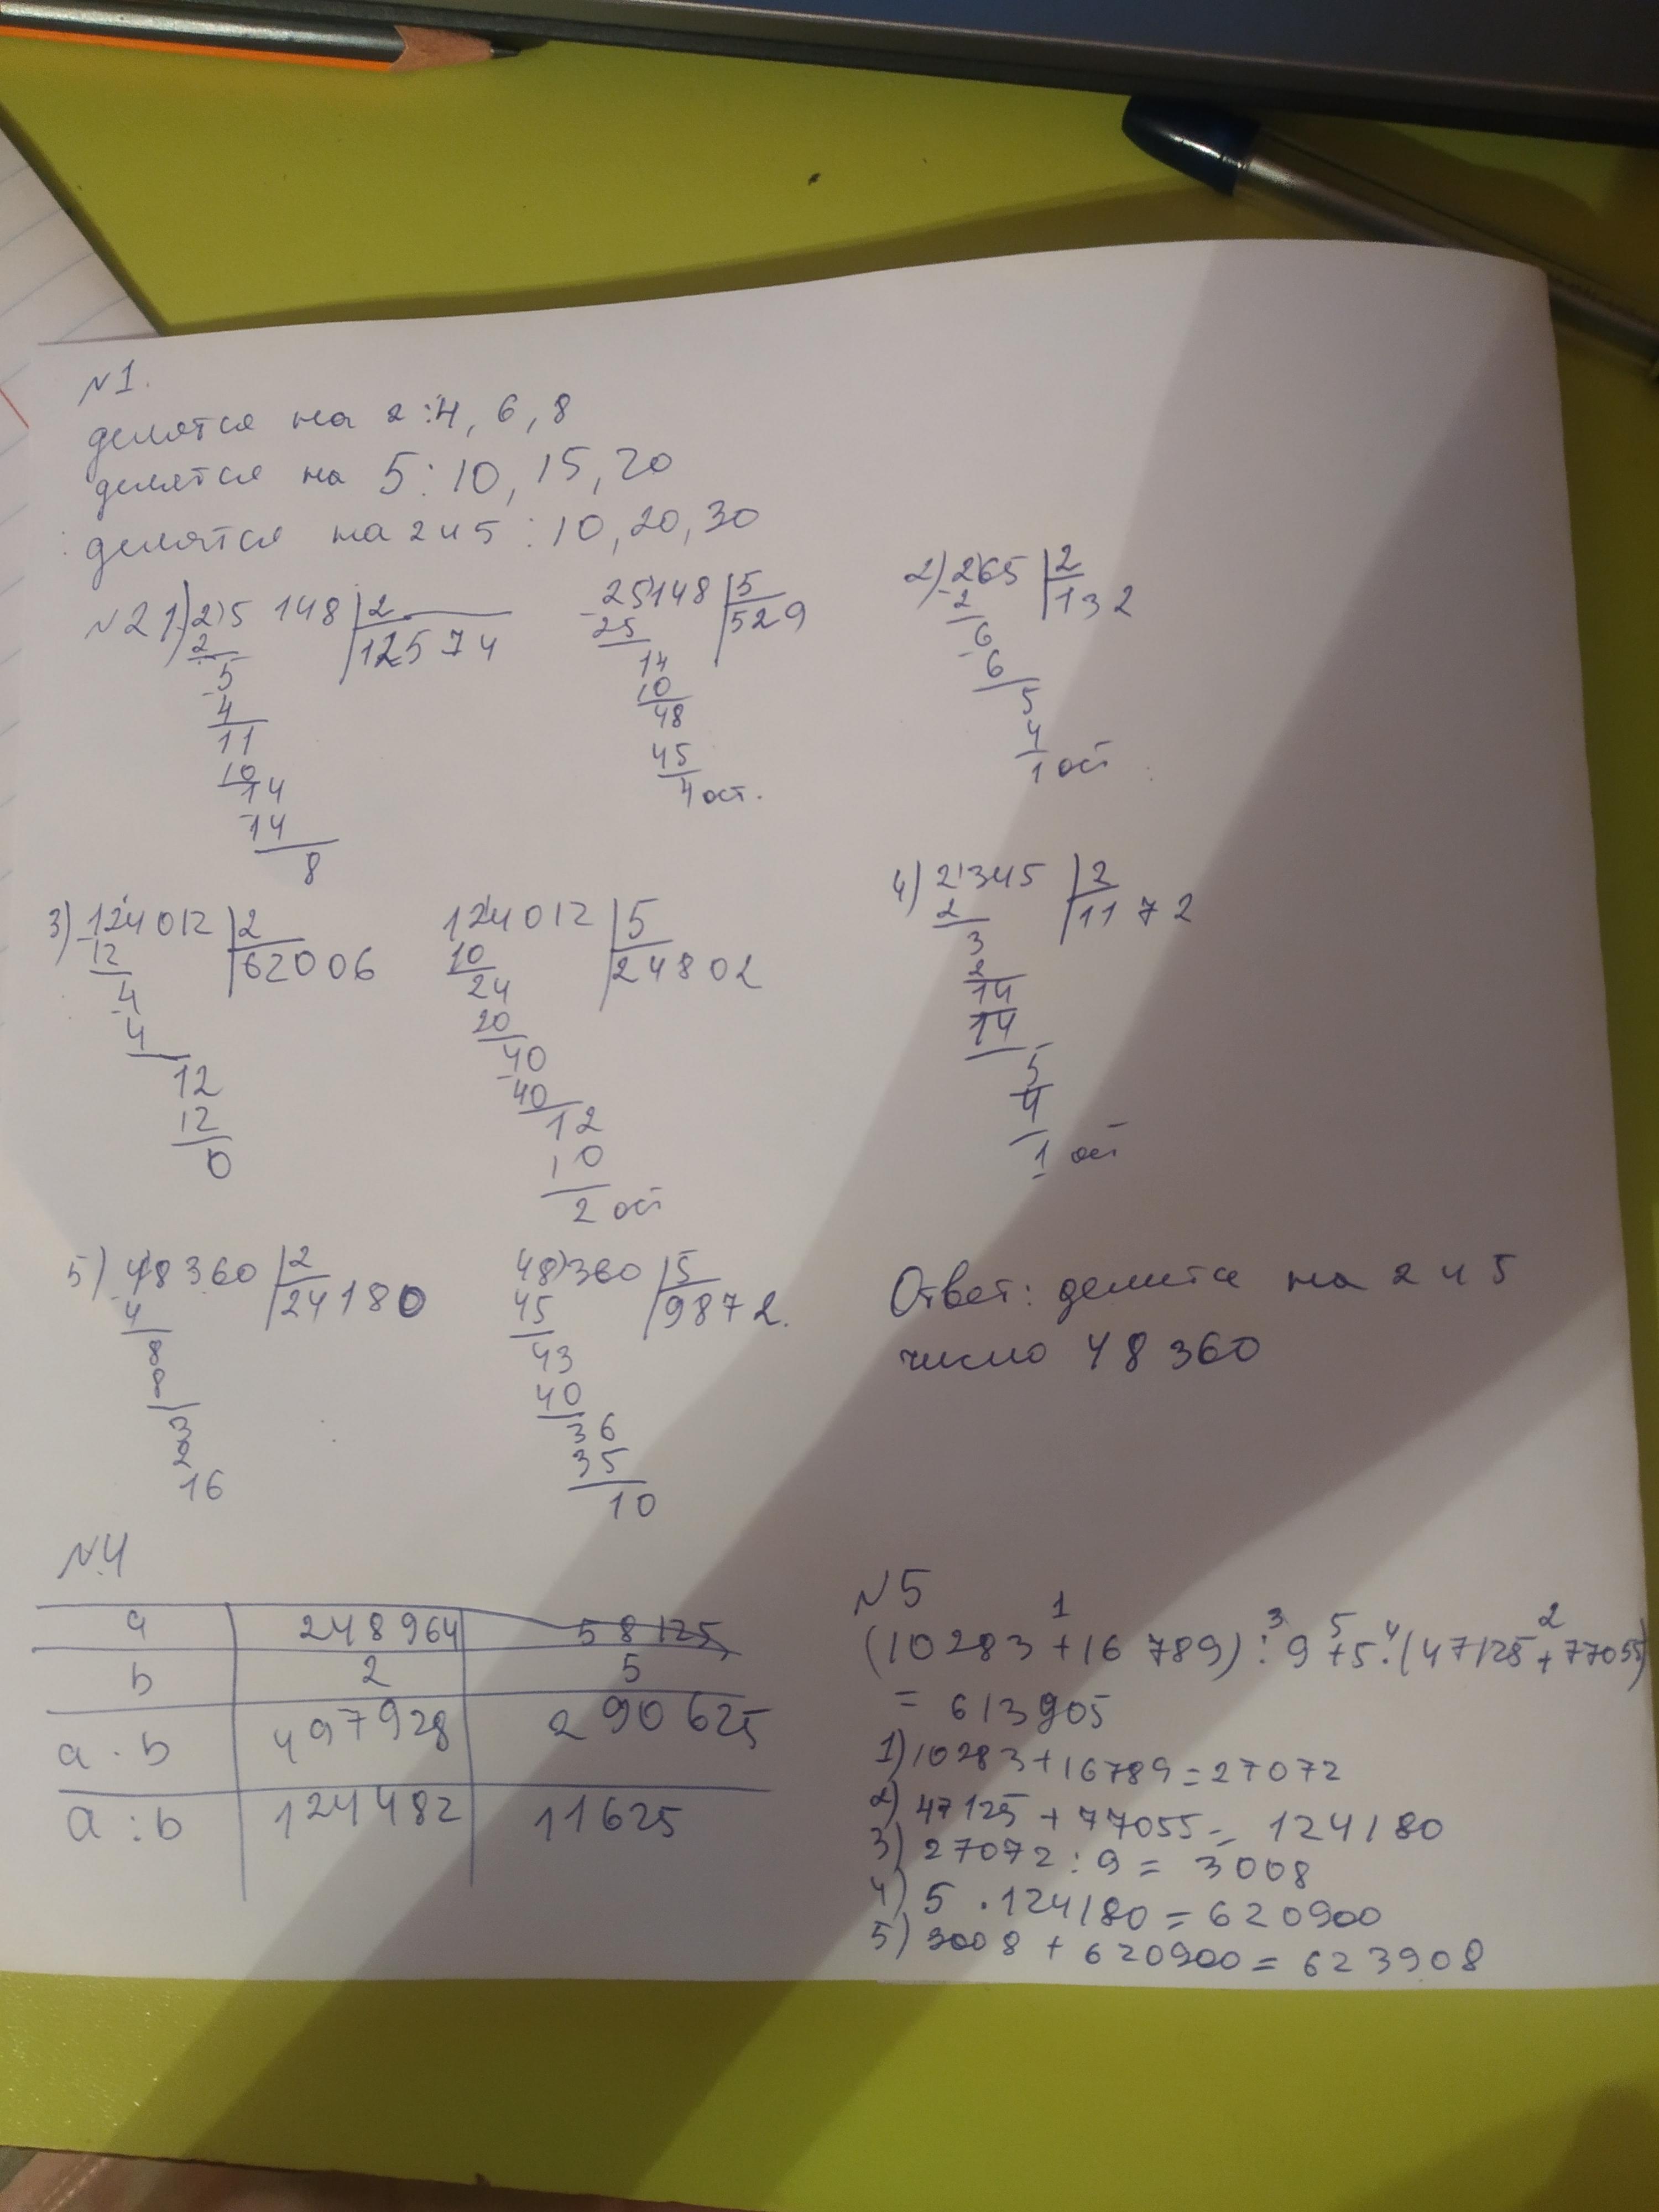 №1.
делятся на 2: 4, 6, 8
делятся на 5: 10, 15, 20
делятся на 2 и 5: 10, 20, 30
№2 1) 25 148 | 2
12574
2
5
4
11
10
14
14
8
25148 | 5
529
25
14
10
48
45
4 ост.
2) 265 | 2
132
2
6
6
5
4
1 ост
3) 124012 | 2
62006
12
4
4
12
12
0
124012 | 5
24802
10
24
20
40
40
12
10
2 ост
4) 2345 | 2
1172
2
3
2
14
14
5
4
1 ост
5) 48360 | 2
24180
4
8
8
3
2
16
48360 | 5
9872.
45
43
40
36
35
10
Ответ: делится на 2 и 5
число 48360
№4
a 248964 58125
b 2 5
a · b 497928 290625
a : b 124482 11625
№5
1 3 5 4 2
(10283 + 16 789) : 9 + 5 · (47125 + 77055)
= 613905
1) 10283 + 16789 = 27072
2) 47125 + 77055 = 124180
3) 27072 : 9 = 3008
4) 5 · 124180 = 620900
5) 3008 + 620900 = 623908